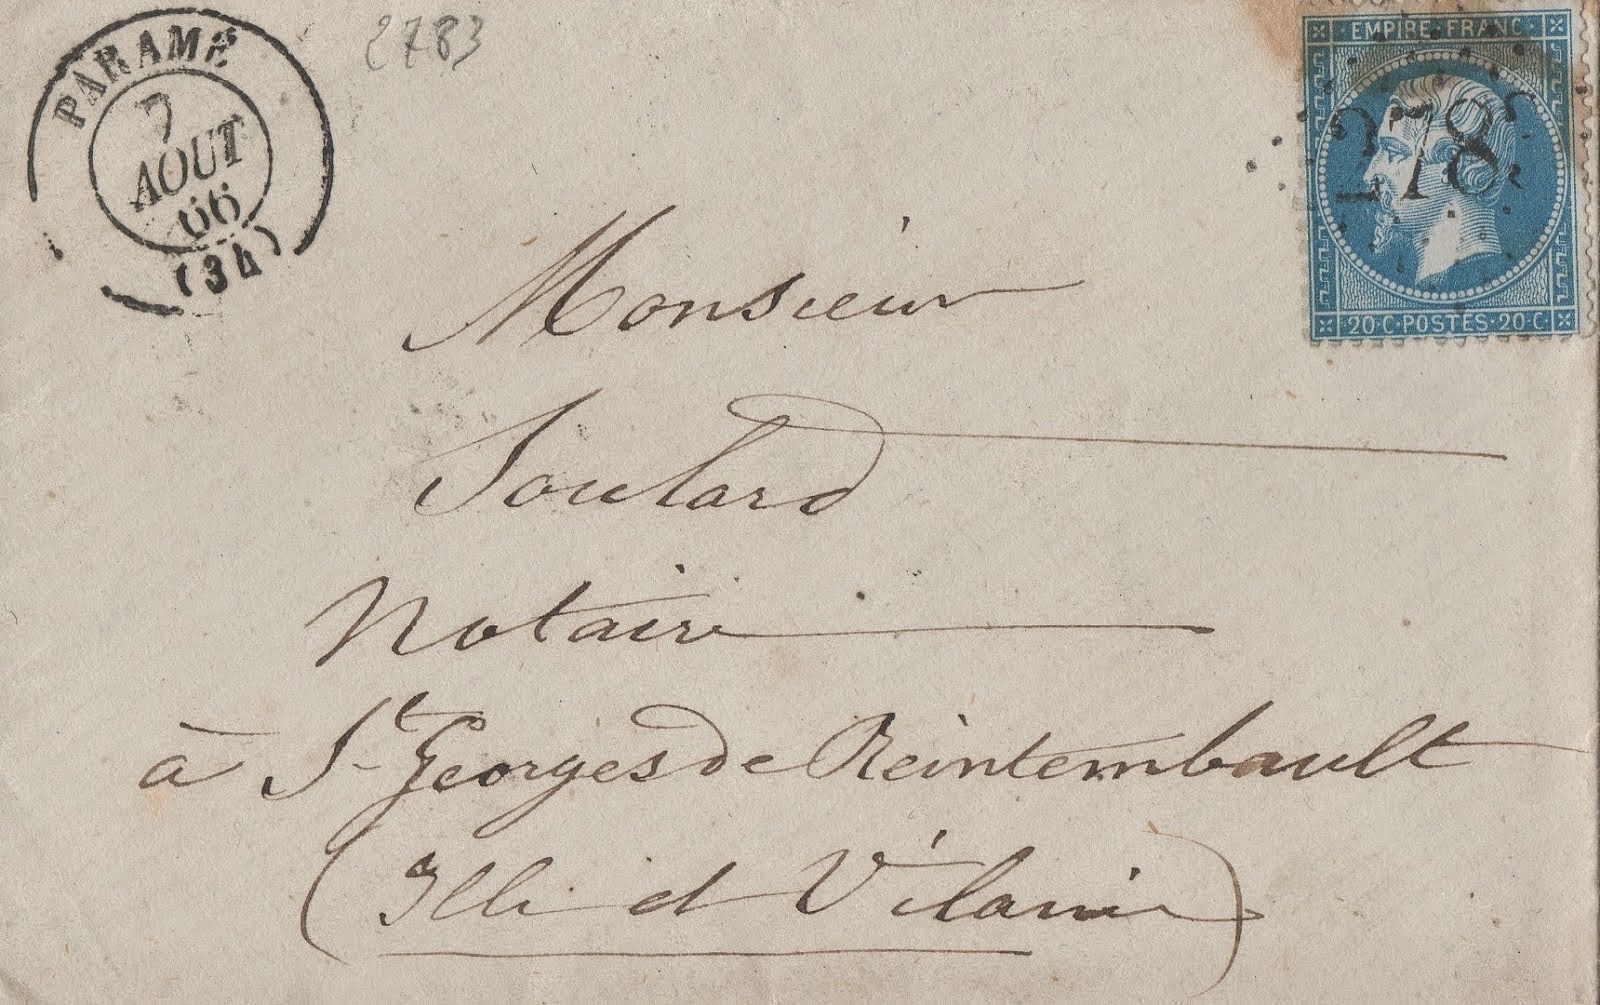 PARAMÉ
7
AOUT
66
(34)
2783
EMPIRE·FRANC·
278
20·C·POSTES·20·C·
Monsieur
Soulard
Notaire
à St Georges de Reintembault
(Ille et Vilaine)